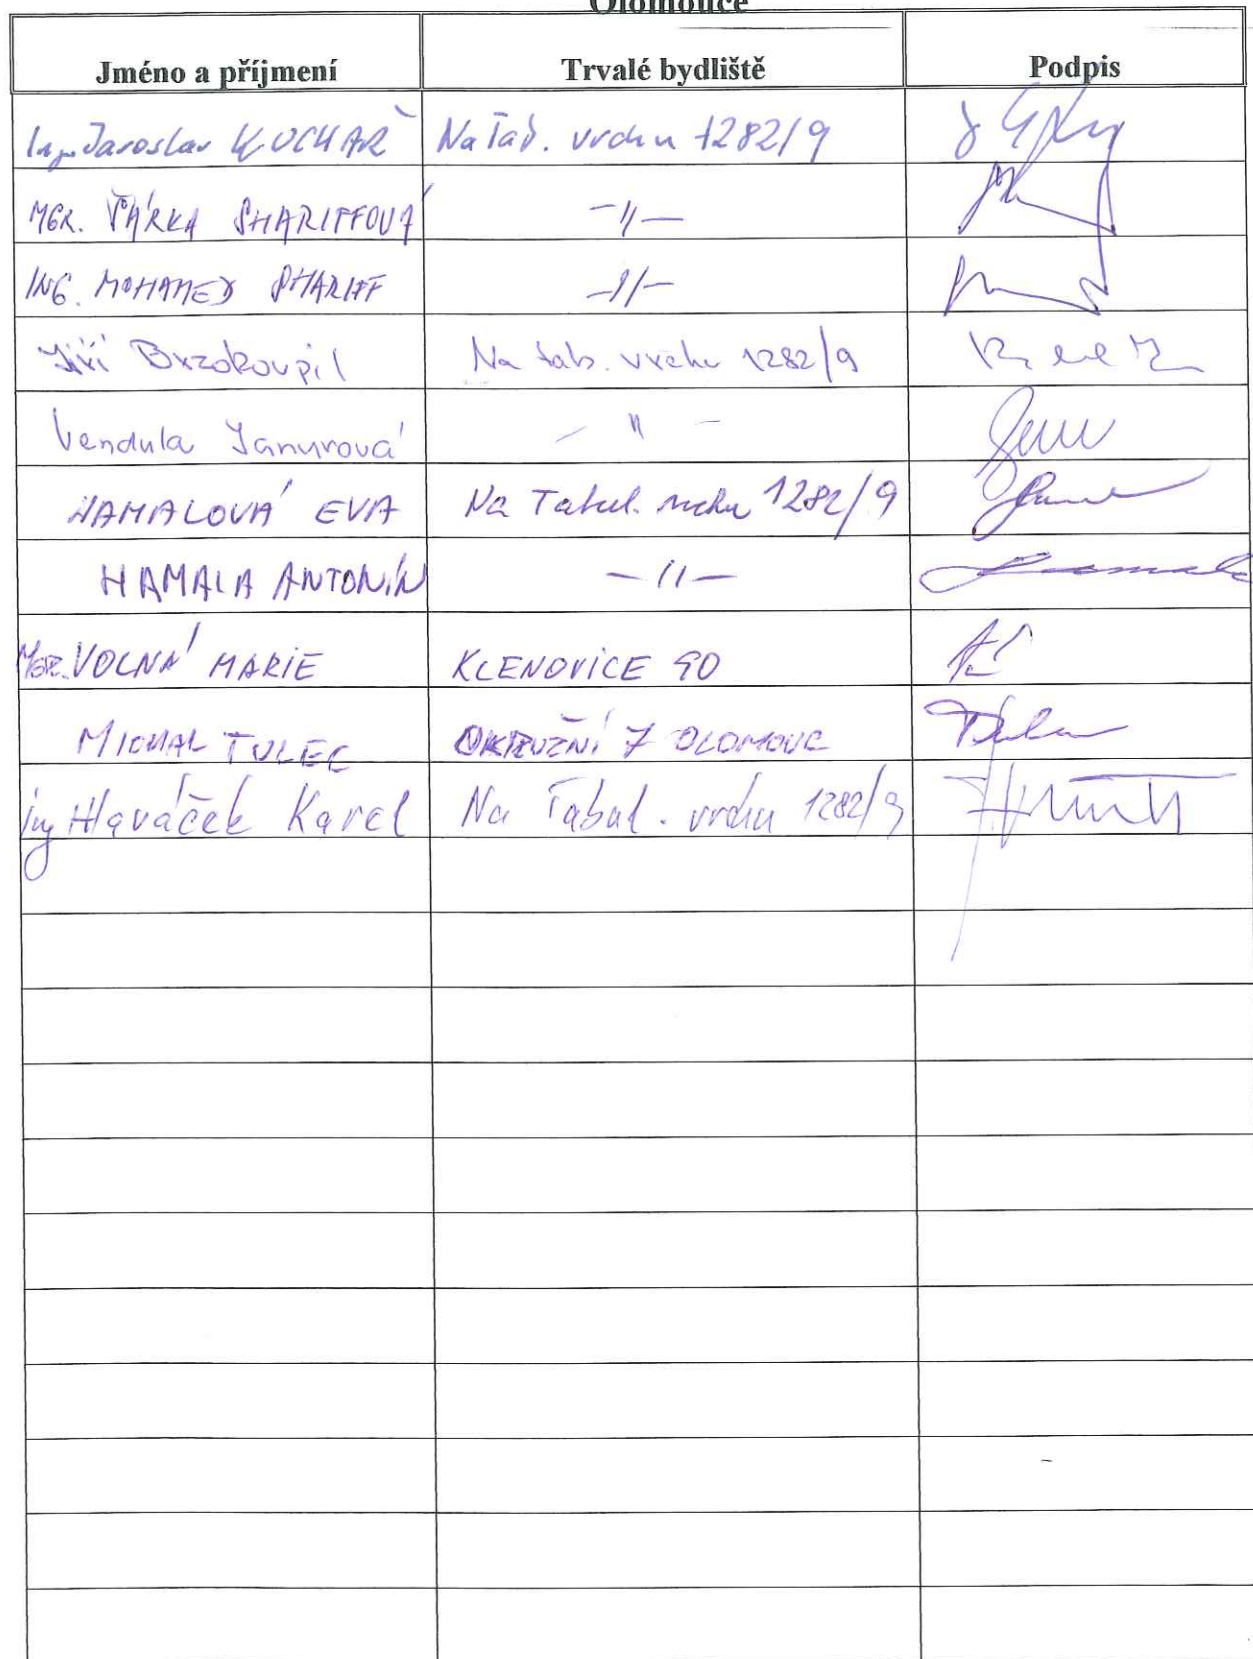 Olomouce
Jméno a příjmení Trvalé bydliště Podpis
Ing. Jaroslav KOCHAŘ Na Tab. vrchu 1282/9
MGR. ŠÁRKA SHARIFFOVÁ -〃-
ING. MOHAMED SHARIFF -〃-
Jiří Brzokoupil Na tab. vrchu 1282/9
Vendula Janurová - 〃 -
HAMALOVÁ EVA Na Tabul. vrchu 1282/9
HAMALA ANTONÍN -〃-
MGR. VOLNÁ MARIE KLENOVICE 90
MICHAL TULEC OKRUŽNÍ 7 OLOMOUC
ing Hlaváček Karel Na Tabul. vrchu 1282/9